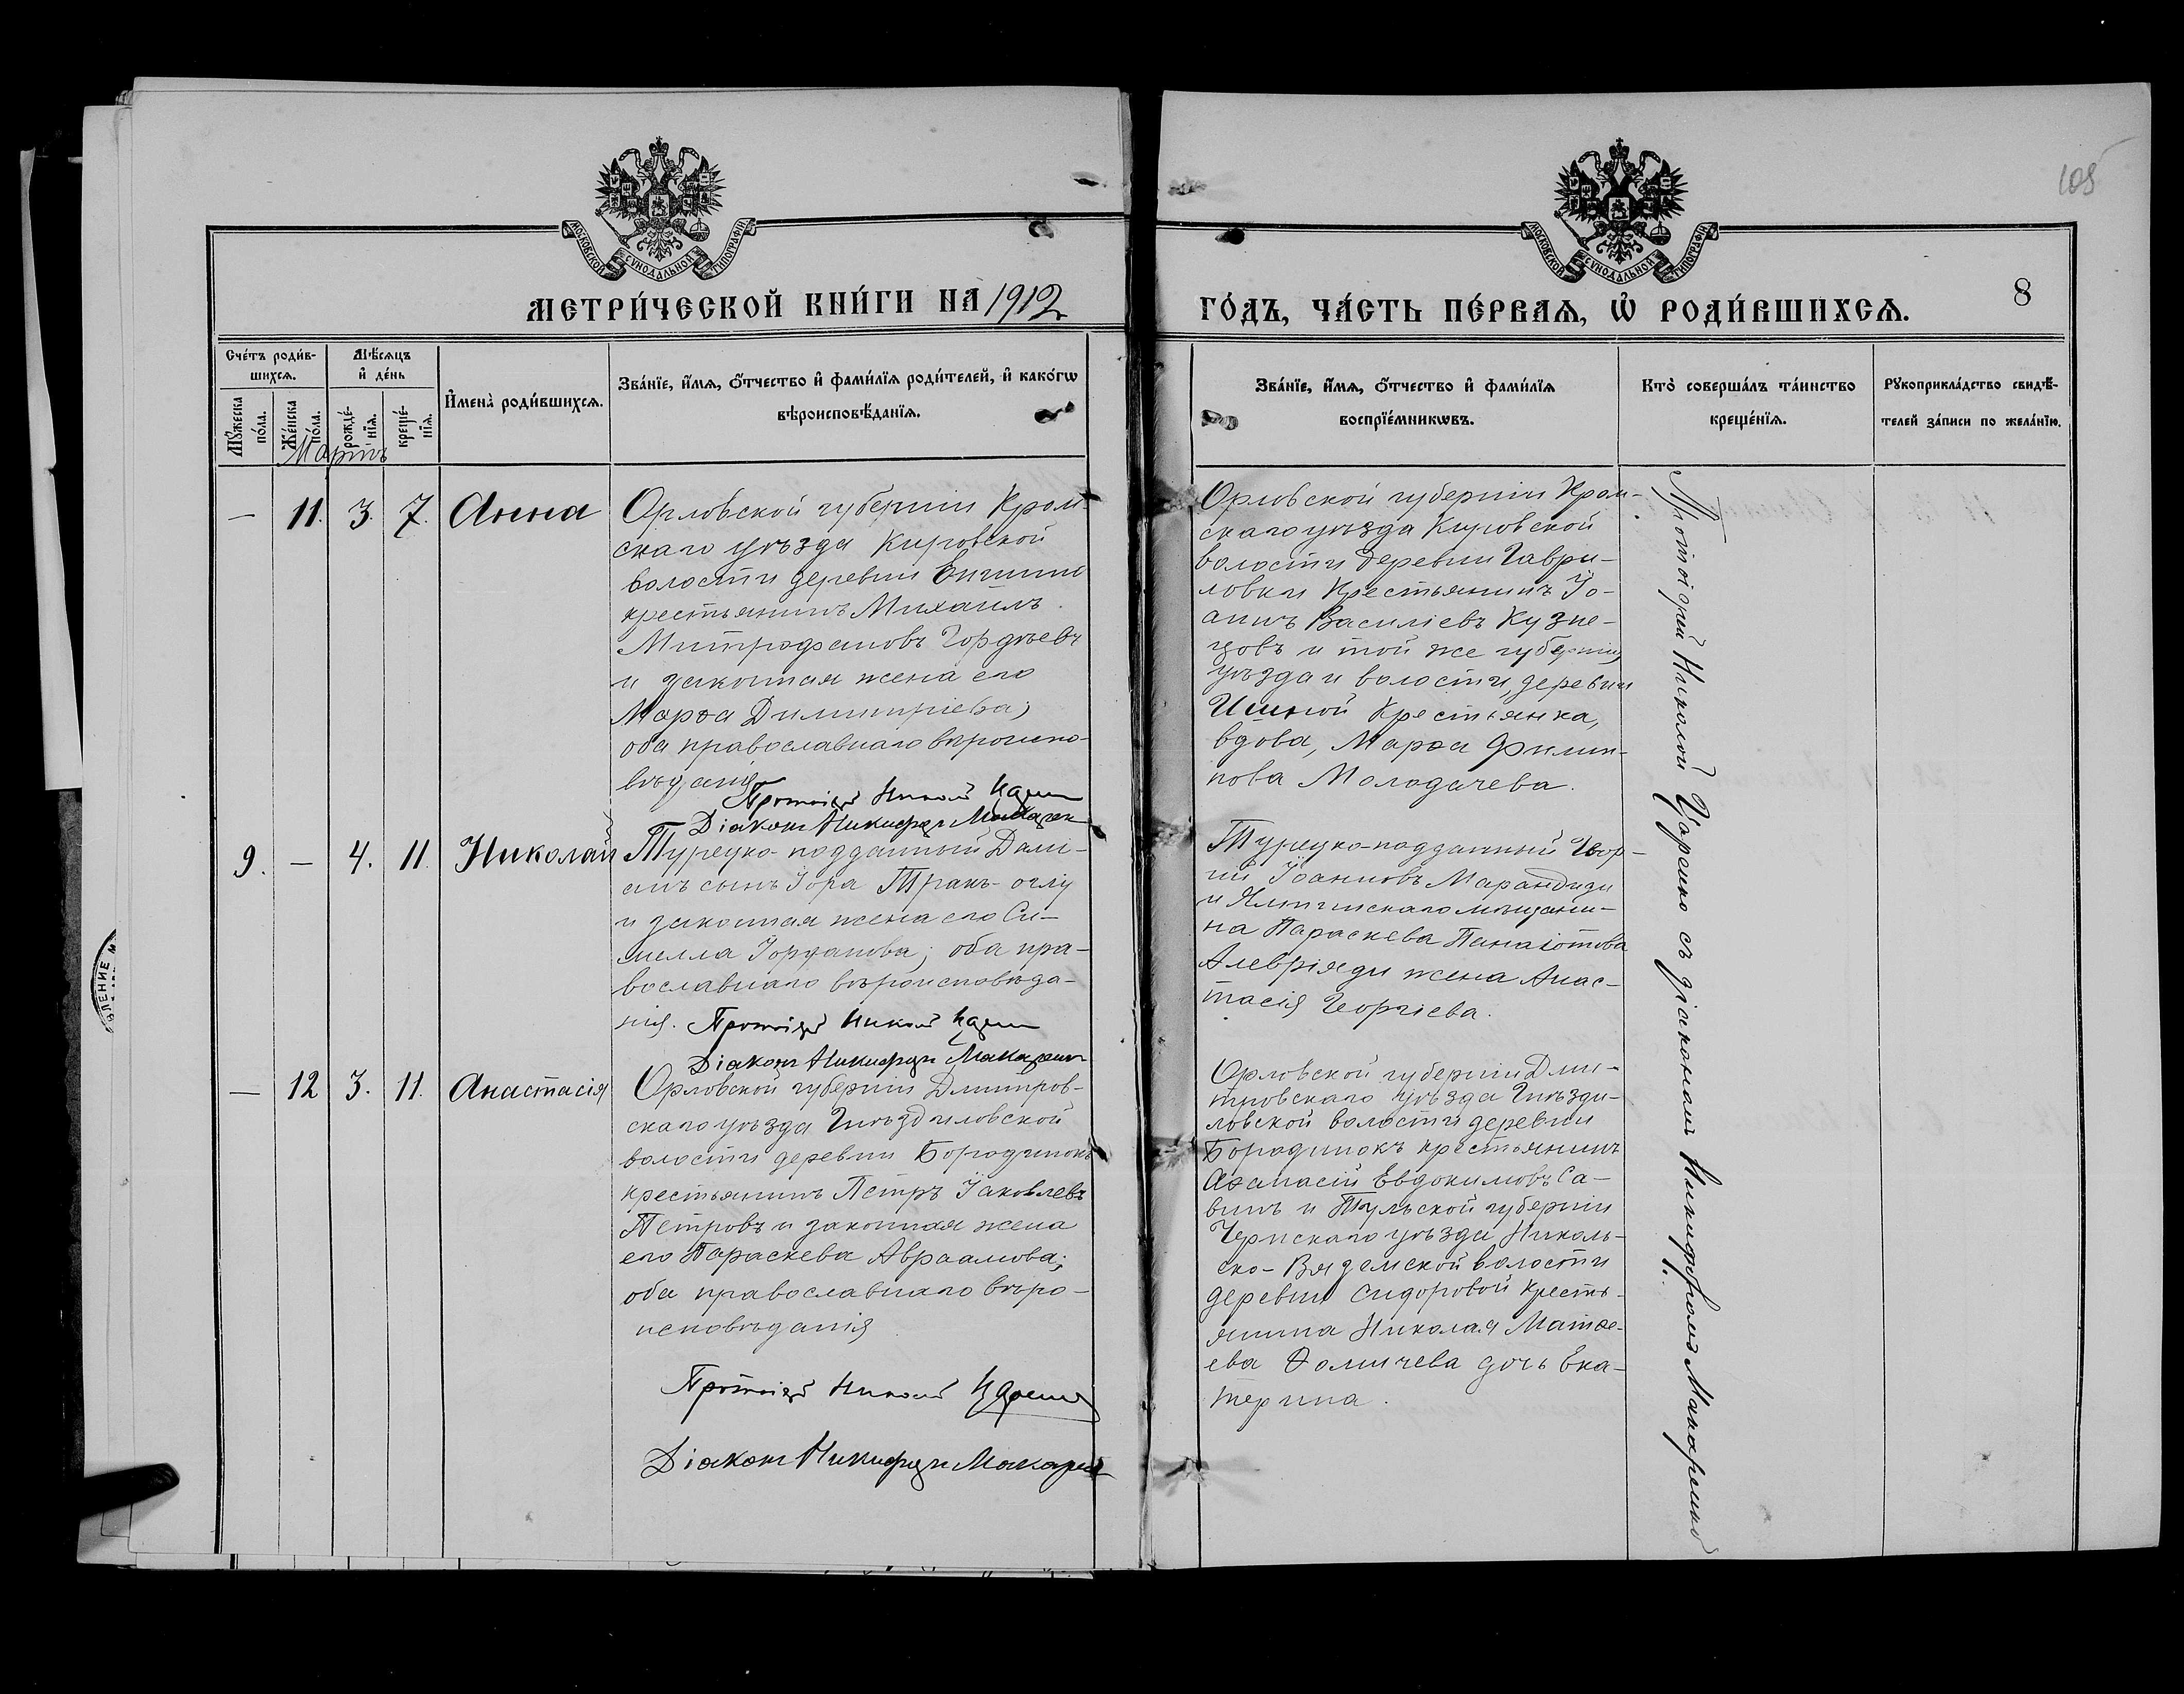 105
МОСКОВСКОЙ СУНОДАЛЬНОЙ ТИПОГРАФІИ
МОСКОВСКОЙ СУНОДАЛЬНОЙ ТИПОГРАФІИ
МЕТРИ́ЧЕСКОЙ КНИ́ГИ НА 1912
ГО́ДЪ, ЧА́СТЬ ПЕ́РВАѦ, Ѡ҆ РОДИ́ВШИХСѦ.
8
Сче́тъ роди́в-
шихсѧ.
Мѣ́сѧцъ
и҆ де́нь
Мꙋ́жеска
по́ла.
Же́нска
по́ла.
рожде́-
нїѧ.
креще́-
нїѧ.
И҆мена̀ роди́вшихсѧ.
Зва́нїе, и҆́мѧ, ѻ҆́тчество и҆ фами́лїѧ роди́телей, и҆ како́гѡ
вѣроисповѣ́данїѧ.
Зва́нїе, и҆́мѧ, ѻ҆́тчество и҆ фами́лїѧ
воспрїе́мникѡвъ.
Кто̀ соверша́лъ та́инство
креще́нїѧ.
Рꙋкоприкла́дство свидѣ́-
телей за́писи по жела́нїю.
Мартъ
— 11. 3. 7. Анна
Орловской губерніи Кром-
скаго уѣзда Кировской
волости деревни
крестьянинъ Михаилъ
Митрофановъ Гордѣевъ
и законная жена его
Марѳа Димитріева;
оба православнаго вѣроиспо-
вѣданія
Протоіерей Николай Царенко
Діаконъ Никифоръ Макаренко
Орловской губерніи Кром-
скаго уѣзда Кировской
волости деревни Гаври-
ловки Крестьянинъ Іо-
аннъ Василіевъ Кузне-
цовъ и той же губерніи,
уѣзда и волости, деревни
Крестьянка,
вдова, Марѳа Филип-
пова Молодачева.
9. — 4. 11. Николай
Турецко-подданный Дами-
анъ сынъ Іора Тракъ-оглу
и законная жена его Си-
мелла Іорданова; оба пра-
вославнаго вѣроисповѣда-
нія. Протоіерей Николай Царенко
Діаконъ Никифоръ Макаренко
Турецко-подданный Геор-
гій Іоанновъ Марандиди
и Ялтинскаго мѣщани-
на Параскева Панаіотова
Алевріяди жена Анас-
тасія Георгіева.
— 12 3. 11. Анастасія
Орловской губерніи Дмитров-
скаго уѣзда Гнѣздиловской
волости деревни Бородинокъ
крестьянинъ Петръ Іаковлевъ
Петровъ и законная жена
его Параскева Авраамова;
оба православнаго вѣро-
исповѣданія
Протоіерей Николай Царенко
Діаконъ Никифоръ Макаренко
Орловской губерніи Дми-
тровскаго уѣзда Гнѣзди-
ловской волости деревни
Бородинокъ крестьянинъ
Аѳанасій Евдокимовъ Са-
винъ и Тульской губерніи
Чернскаго уѣзда Николь-
ско-Вяземской волости
деревни Сидоровой кресть-
янина Николая Матѳе-
ева Ѳомичева дочь Ека-
терина.
Протоіерей Николай Царенко съ діакономъ Никифоромъ Макаренко